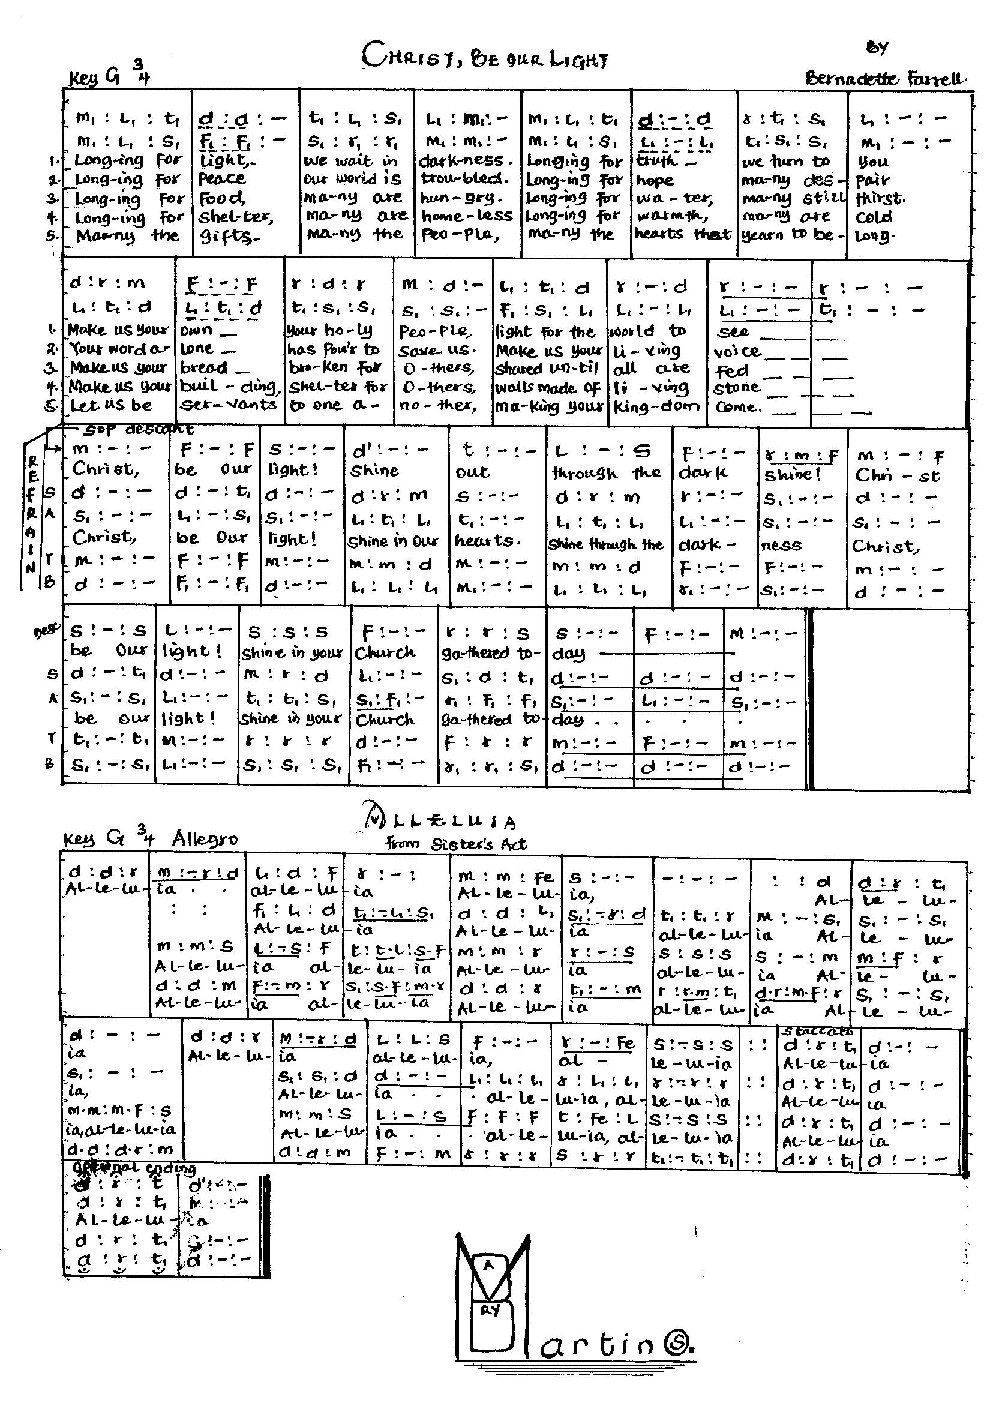 CHRIST, BE OUR LIGHT
BY
Key G 3/4
Bernadette Farrell.
m₁ : l₁ : t₁ | d : d : – | t₁ : l₁ : s₁ | l₁ : m₁ : – | m₁ : l₁ : t₁ | d : – : d | r : t₁ : s₁ | l₁ : – : –
m₁ : l₁ : s₁ | f₁ : f₁ : – | s₁ : r₁ : r₁ | m₁ : m₁ : – | m₁ : l₁ : s₁ | l₁ : – : l₁ | t₁ : s₁ : s₁ | m₁ : – : –
1. Long-ing for | light, – | we wait in | dark-ness. | Longing for | truth – | we turn to | you
2. Long-ing for | Peace | our world is | trou-bled. | Longing for | hope | ma-ny des- | pair
3. Long-ing for | food, | ma-ny are | hun-gry. | Longing for | wa-ter, | many still | thirst.
4. Long-ing for | shel-ter, | ma-ny are | home-less | Longing for | warmth, | ma-ny are | cold
5. Ma-ny the | gifts. | ma-ny the | Peo-Ple, | ma-ny the | hearts that | yearn to be- | long.
d : r : m | f : – : f | r : d : r | m : d : – | l₁ : t₁ : d | r : – : d | r : – : – | r : – : –
l₁ : t₁ : d | l₁ : t₁ : d | t₁ : s₁ : s₁ | s₁ : s₁ : – | f₁ : s₁ : l₁ | l₁ : – : l₁ | l₁ : – : – | t₁ : – : –
1. Make us your | own __ | your ho-ly | Peo-Ple, | light for the | world to | see __
2. Your word a- | lone __ | has Pow'r to | save us. | Make us your | li-ving | voice __ __
3. Make us your | bread __ | bro-ken for | o-thers, | shared un-til | all are | fed __ __
4. Make us your | buil-ding, | shel-ter for | o-thers, | walls made of | li-ving | stone __ __
5. Let us be | ser-vants | to one a- | no-ther, | ma-king your | king-dom | come. __ __
Sop descant
REFRAIN
m : – : – | f : – : f | s : – : – | d' : – : – | t : – : – | l : – : s | f : – : – | r : m : f | m : – : f
Christ, | be our | light! | Shine | out | through the | dark | shine! | Chri-st
S d : – : – | d : – : t₁ | d : – : – | d : r : m | s : – : – | d : r : m | r : – : – | s₁ : – : – | d : – : –
A s₁ : – : – | l₁ : – : s₁ | s₁ : – : – | l₁ : t₁ : l₁ | t₁ : – : – | l₁ : t₁ : l₁ | l₁ : – : – | s₁ : – : – | s₁ : – : –
Christ, | be our | light! | Shine in our | hearts. | Shine through the | dark- | ness | Christ,
T m : – : – | f : – : f | m : – : – | m : m : d | m : – : – | m : m : d | f : – : – | f : – : – | m : – : –
B d : – : – | f₁ : – : f₁ | d : – : – | l₁ : l₁ : l₁ | m₁ : – : – | l₁ : l₁ : l₁ | r₁ : – : – | s₁ : – : – | d : – : –
Des s : – : s | l : – : – | s : s : s | f : – : – | r : r : s | s : – : – | f : – : – | m : – : –
be our | light! | Shine in your | Church | ga-thered to- | day
S d : – : t₁ | d : – : – | m : r : d | l₁ : – : – | s₁ : d : t₁ | d : – : – | d : – : – | d : – : –
A s₁ : – : s₁ | l₁ : – : – | t₁ : t₁ : s₁ | s₁ : f₁ : – | r₁ : f₁ : f₁ | s₁ : – : – | l₁ : – : – | s₁ : – : –
be our | light! | Shine in your | Church | ga-thered to- | day . . . .
T t₁ : – : t₁ | m : – : – | r : r : r | d : – : – | f : r : r | m : – : – | f : – : – | m : – : –
B s₁ : – : s₁ | l₁ : – : – | s₁ : s₁ : s₁ | f₁ : – : – | r₁ : r₁ : s₁ | d : – : – | d : – : – | d : – : –
ALLELUIA
Key G 3/4 Allegro
from Sister's Act
d : d : r | m : – r : d | l₁ : d : f | r : – : | m : m : fe | s : – : – | – : – : – | : : d | d : r : t₁
Al-le-lu- | ia . . | al-le-lu- | ia | Al-le-lu- | ia, | Al- | le - lu-
: : | f₁ : l₁ : d | t₁ : – l₁ : s₁ | d : d : l₁ | s₁ : – r : d | t₁ : t₁ : r | m : – : s₁ | s₁ : – : s₁
Al-le-lu- | ia | Al-le-lu- | ia | al-le-lu- | ia Al- | le - lu-
m : m : s | l : – s : f | t : t·l : s·f | m : m : r | r : – : s | s : s : s | s : – : m | m : f : r
Al-le-lu- | ia al- | le-lu-ia | Al-le-lu- | ia | al-le-lu- | ia Al- | le - lu-
d : d : m | f : – m : r | s₁ : s·f : m·r | d : d : r | t₁ : – : m | r : r·m : t₁ | d·r : m·f : r | s₁ : – : s₁
Al-le-lu- | ia al- | le-lu-ia | Al-le-lu- | ia | al-le-lu- | ia Al- | le - lu-
Staccato
d : – : – | d : d : r | m : – r : d | l : l : s | f : – : – | r : – : fe | s : – s : s | : : | d : r : t₁ | d : – : –
ia | Al-le-lu- | ia | al-le-lu- | ia, | al - | le-lu-ia | Al-le-lu- | ia
s₁ : – : – | s₁ : s₁ : d | d : – : – | l₁ : l₁ : l₁ | r : l₁ : l₁ | r : – r : r | d : r : t₁ | d : – : –
ia, | Al-le-lu- | ia . . | al-le- | lu-ia, al- | le-lu-ia | Al-le-lu- | ia
m·m : m·f : s | m : m : s | l : – : s | f : f : f | t : fe : l | s : – s : s | : : | d : r : t₁ | d : – : –
ia, al-le-lu-ia | Al-le-lu- | ia . . | al-le- | lu-ia, al- | le-lu-ia | Al-le-lu- | ia
d·d : d·r : m | d : d : m | f : – : m | r : r : r | s : r : r | t₁ : – t₁ : t₁ | : : | d : r : t₁ | d : – : –
Optional ending
d : r : t | d' : – : –
d : r : t₁ | m : – : –
Al-le-lu- | ia
d : r : t₁ | s : – : –
d : r : t₁ | d : – : –
MARY
artin S.